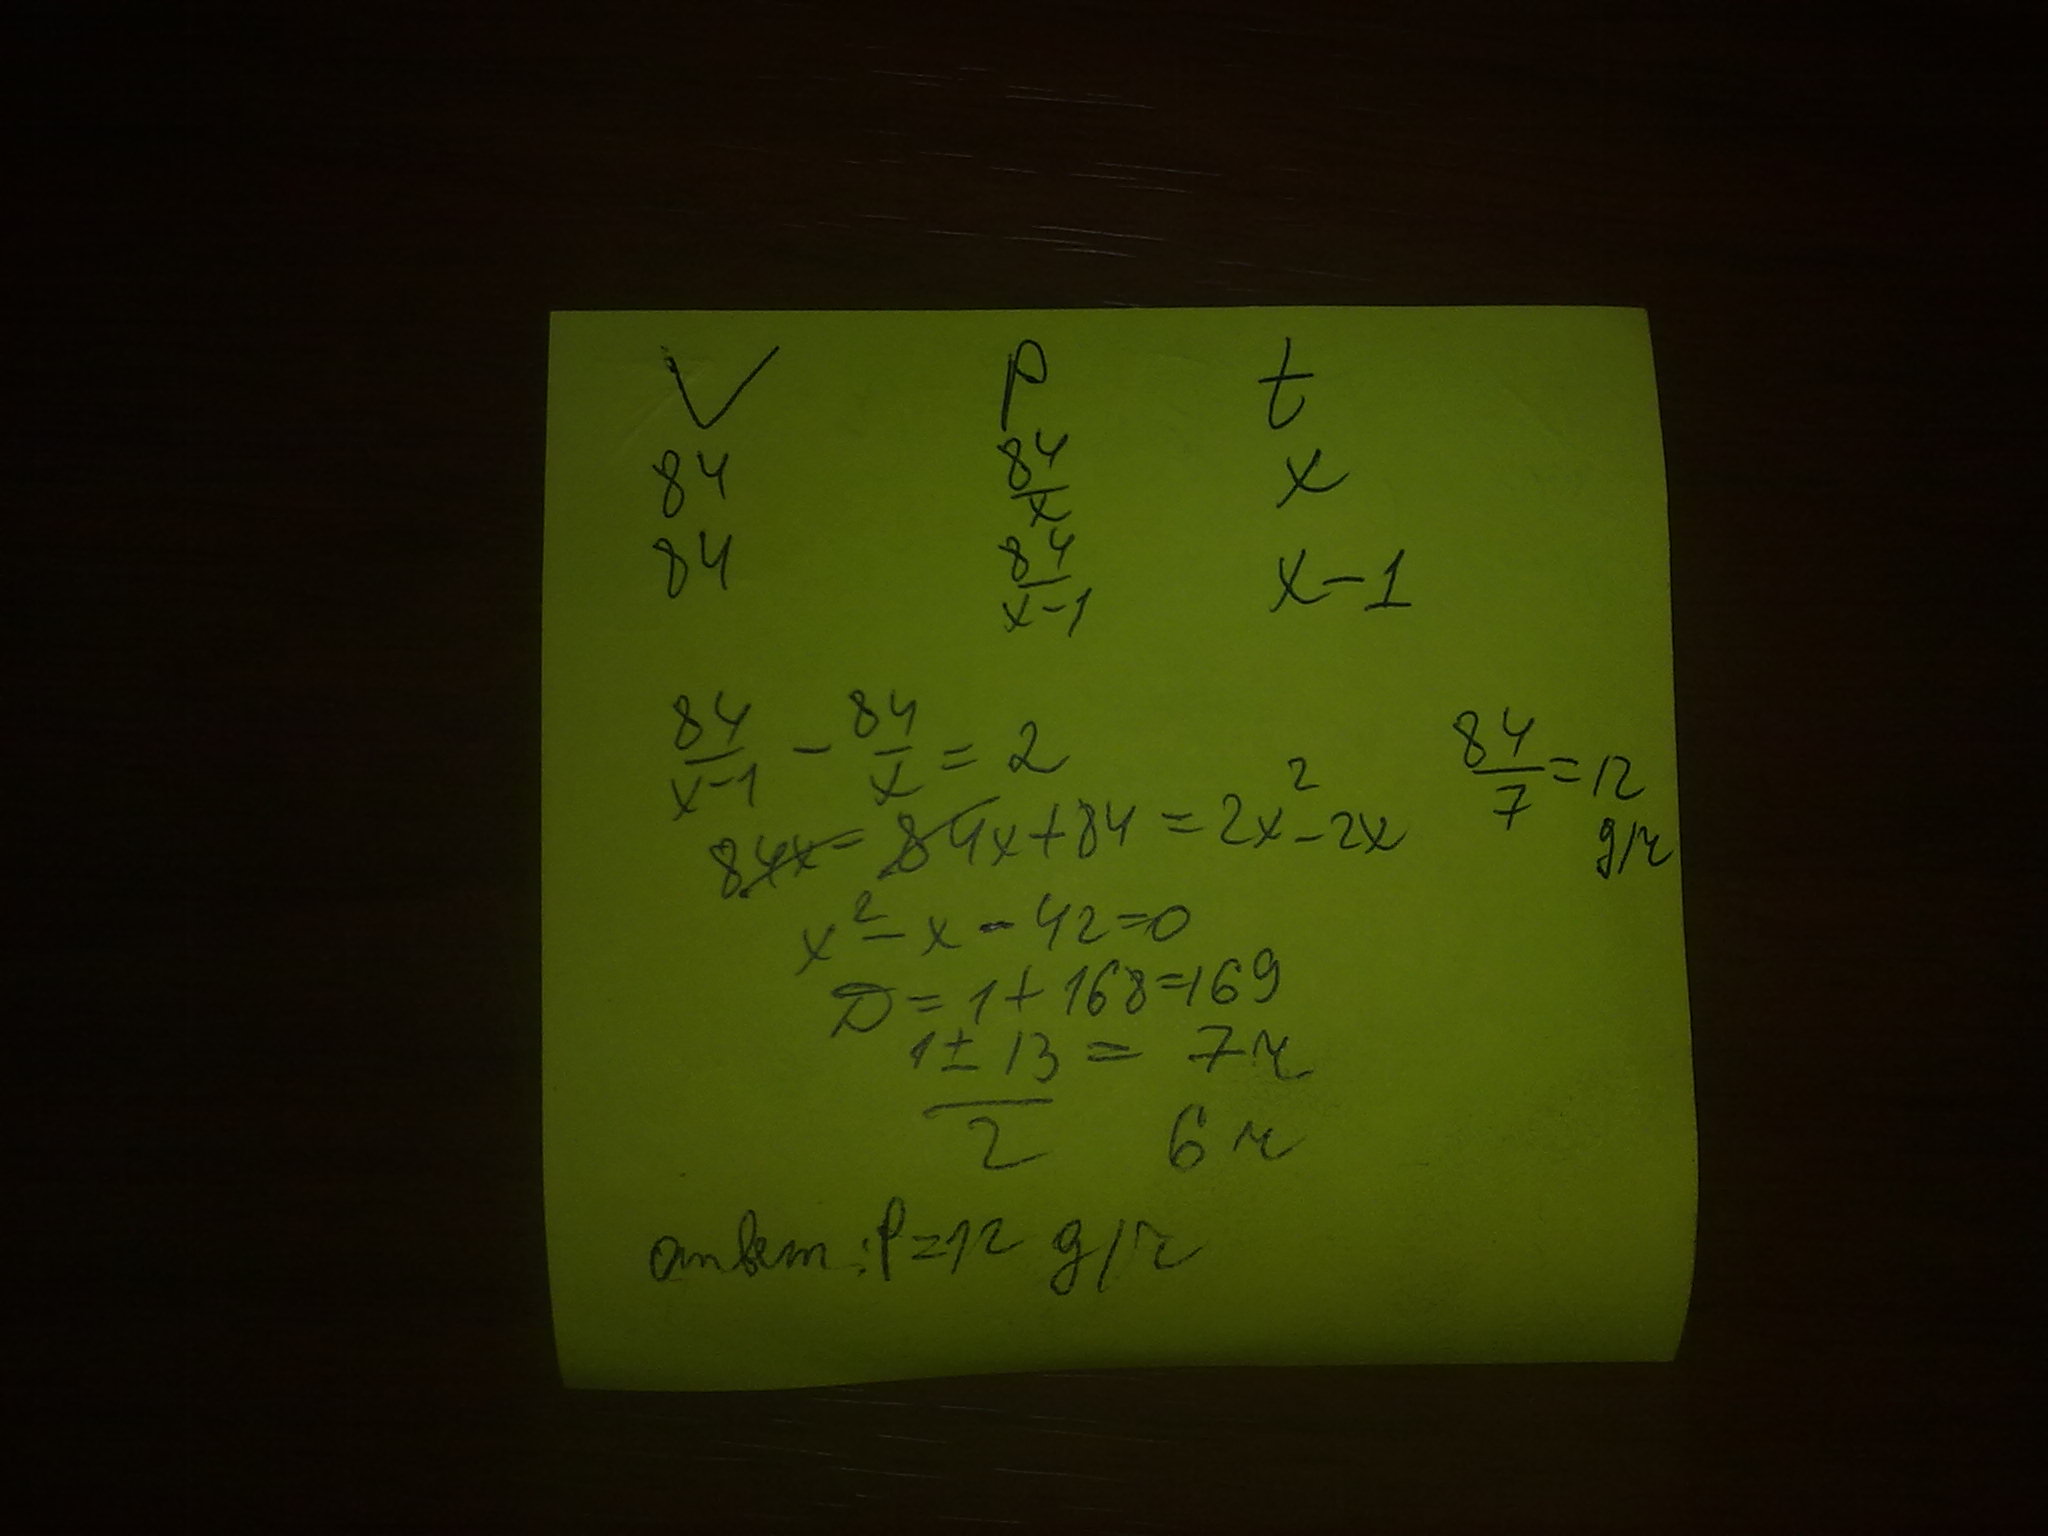 V P t
84 84/x x
84 84/x-1 x-1
84/x-1 - 84/x = 2
84/7 = 12 g/ч
84x - 84x + 84 = 2x² - 2x
x² - x - 42 = 0
D = 1 + 168 = 169
1 ± 13/2 = 7ч
6ч
ответ: P = 12 g/ч